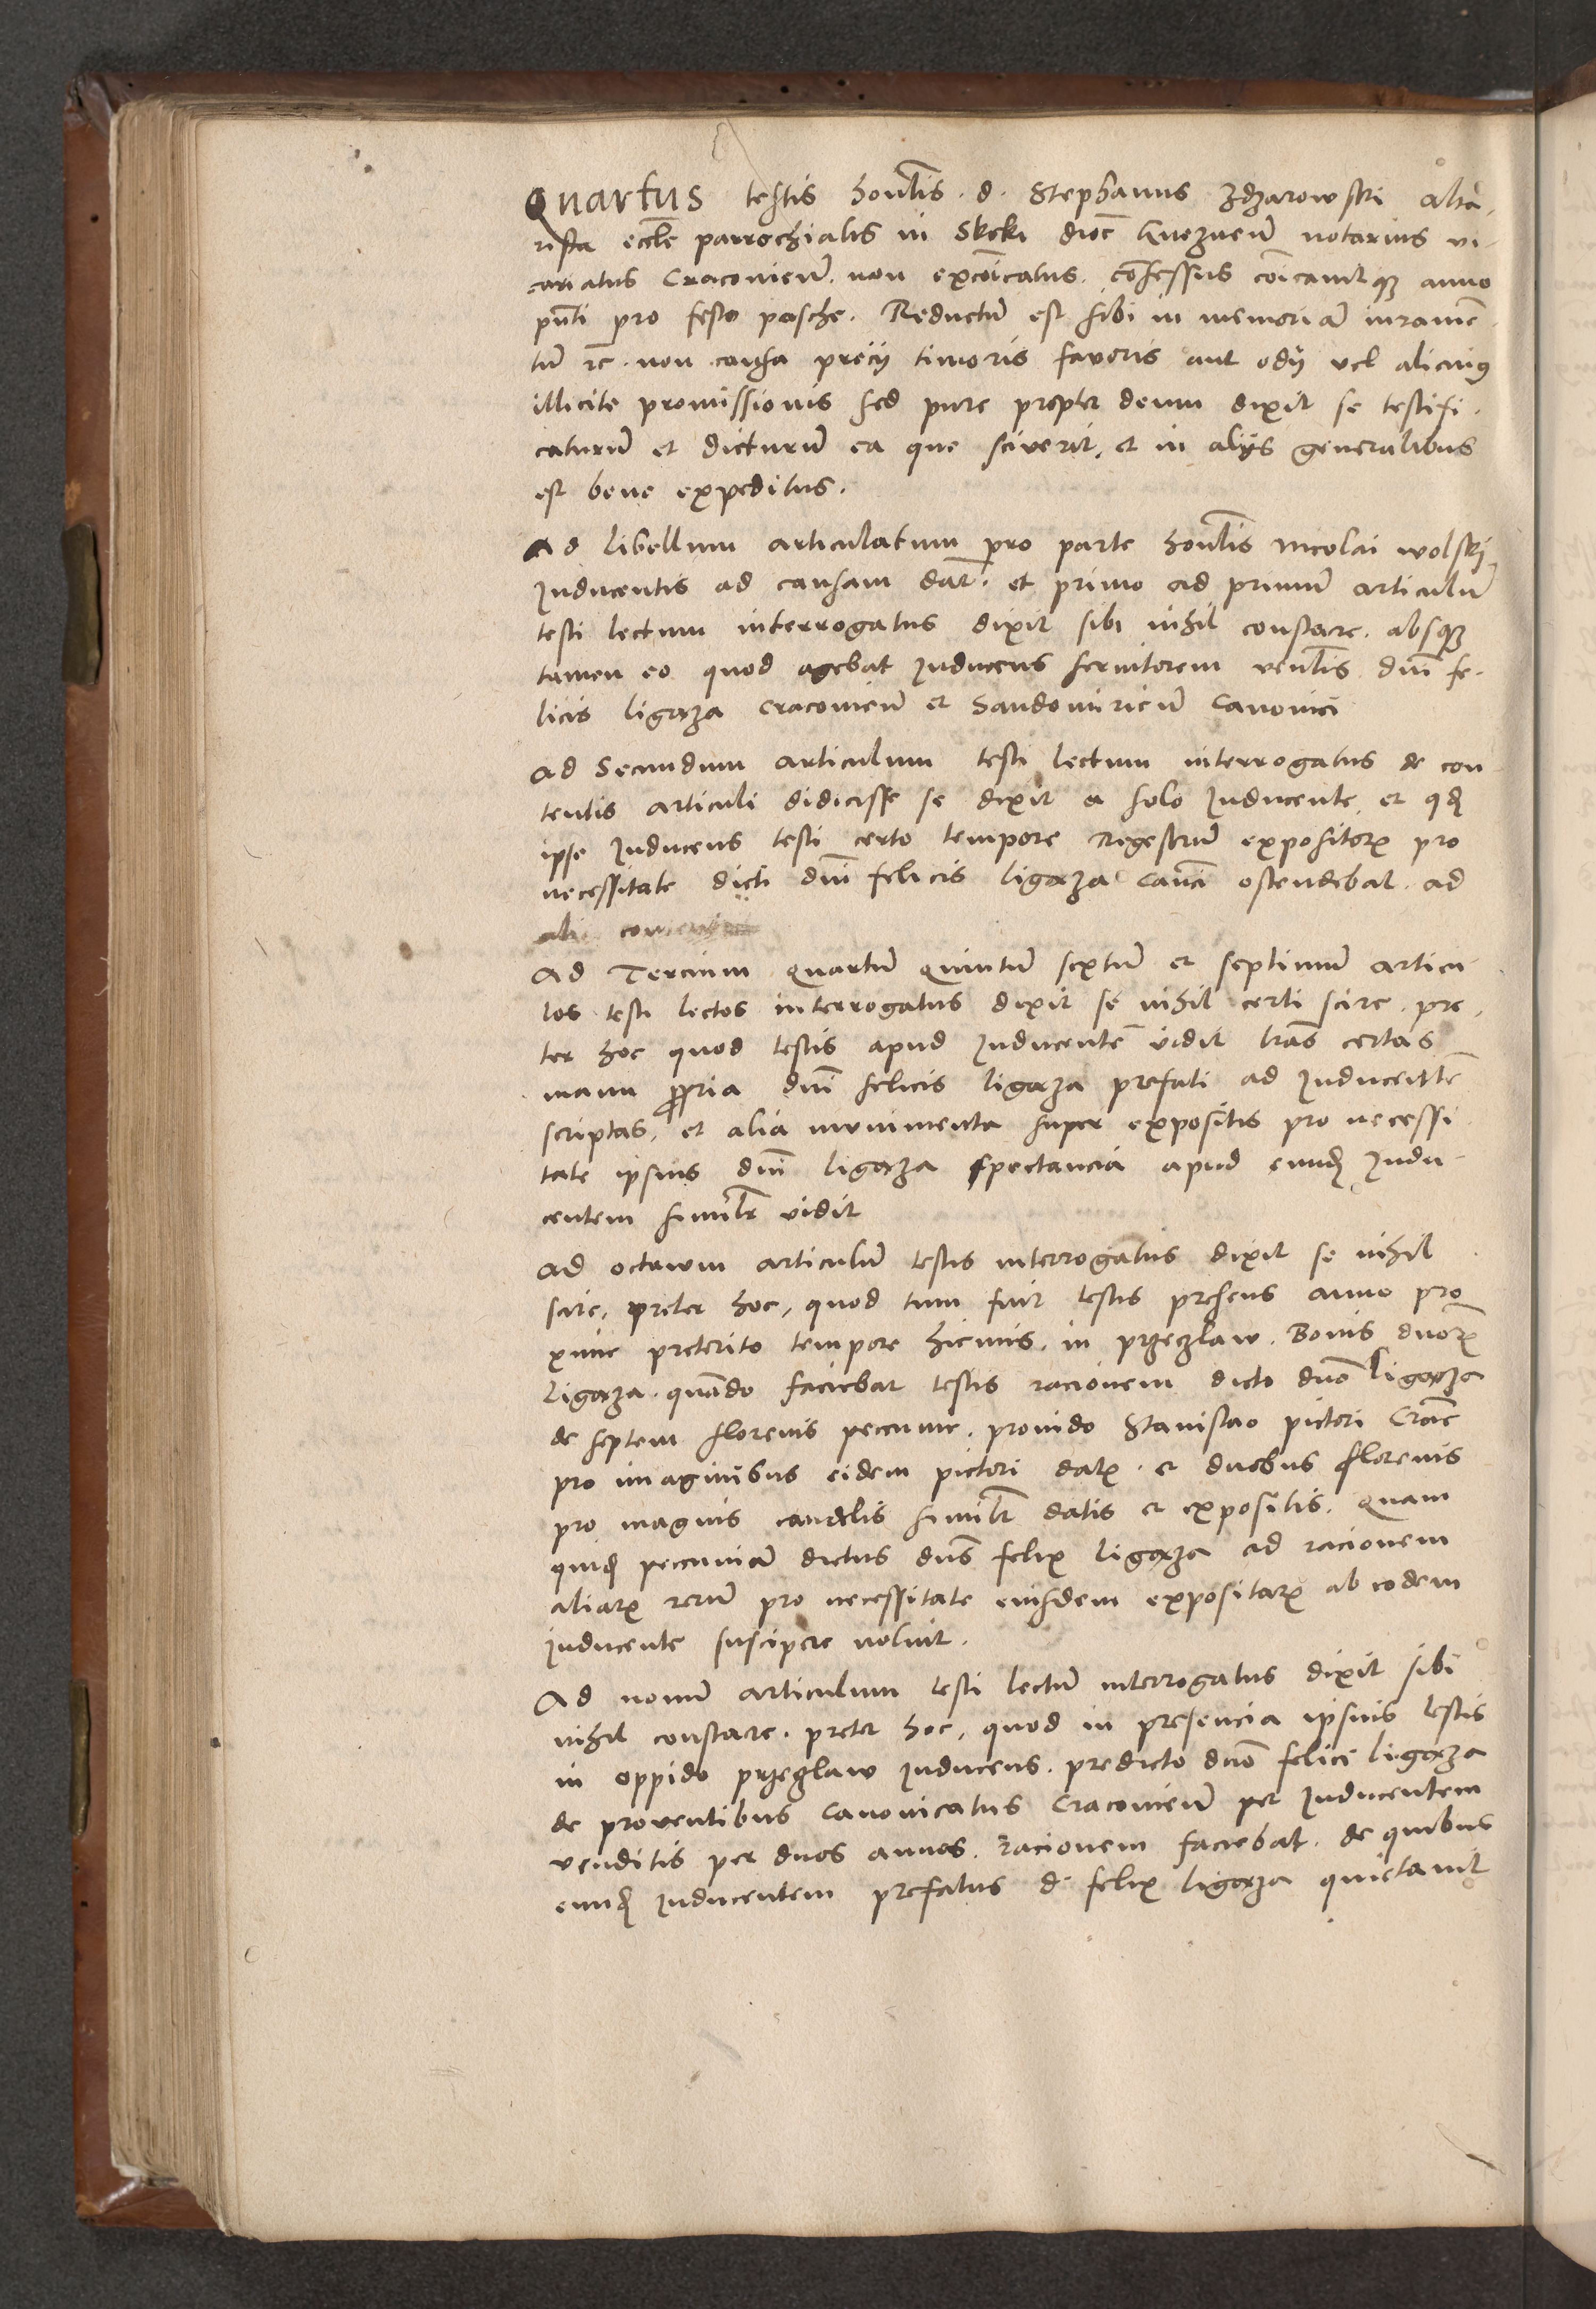 Quartus testis honlis. d. Stephanus Zdzarowski alta-
rista eccle parrochialis in Skcki dioc Gneznen notarius vi-
cariatus Cracovien. non excoicatus. confessus coicavitque anno
pnti pro festo pasche. Reductum est sibi in memoriam iuramen-
tum etc. non causa precij timoris favoris aut odij vel alicuius
illicite promissionis sed pure propter deum dixit se testifi-
caturum et dicturum ea que sciverit. et in alijs generalibus
est bene expeditus.
Ad libellum articulatum pro parte honlis Nicolai Wolski
Inducentis ad causam dat. et primo ad primum articulum
testi lectum interrogatus dixit sibi nihil constare. absque
tamen eo quod agebat Inducens servitorem venlis dni Fe-
licis Ligaza Cracovien et Sandomirien Canonici
Ad Secundum articulum testi lectum interrogatus de con-
tentis articuli didicisse se dixit a solo Inducente, et quod
ipse Inducens testi certo tempore Regestrum expositorum pro
necessitate dicti dni Felicis Ligaza Canci ostendebat. ad
Ad Tercium Quartum Quintum sextum et septimum articu-
los testi lectos interrogatus dixit se nihil certi scire. pre-
ter hoc quod testis apud Inducentem vidit lras certas
manu propria dni Felicis Ligaza prefati ad Inducentem
scriptas, et alia munimenta super expositis pro necessi-
tate ipsius dni Ligaza spectancia apud eundem Indu-
centem similr vidit
Ad octavum articulum testis interrogatus dixit se nihil
scire, preter hoc, quod tum fuit testis presens anno pro-
xime preterito tempore hiemis. in Przeczlaw. Bonis dnorum
Ligaza. quando faciebat testis racionem dicto dno Ligaza
de septem florenis peccunie. provido Stanislao pictori Crac
pro imaginibus eidem pictori datis. et duobus florenis
pro magnis candelis similr datis et expositis. Quam
quidem peccuniam dictus dns Felix Ligaza ad racionem
aliarum rerum pro necessitate eiusdem expositarum ab eodem
Inducente suscipere noluit.
Ad nonum articulum testi lectum interrogatus dixit sibi
nihil constare. preter hoc, quod in presencia ipsius testis
in oppido Przeczlaw Inducens. predicto dno Felici Ligaza
de proventibus Canonicatus Cracovien per Inducentem
venditis per duos annos. racionem faciebat. de quibus
eundem Inducentem prefatus d. Felix Ligaza quietavit